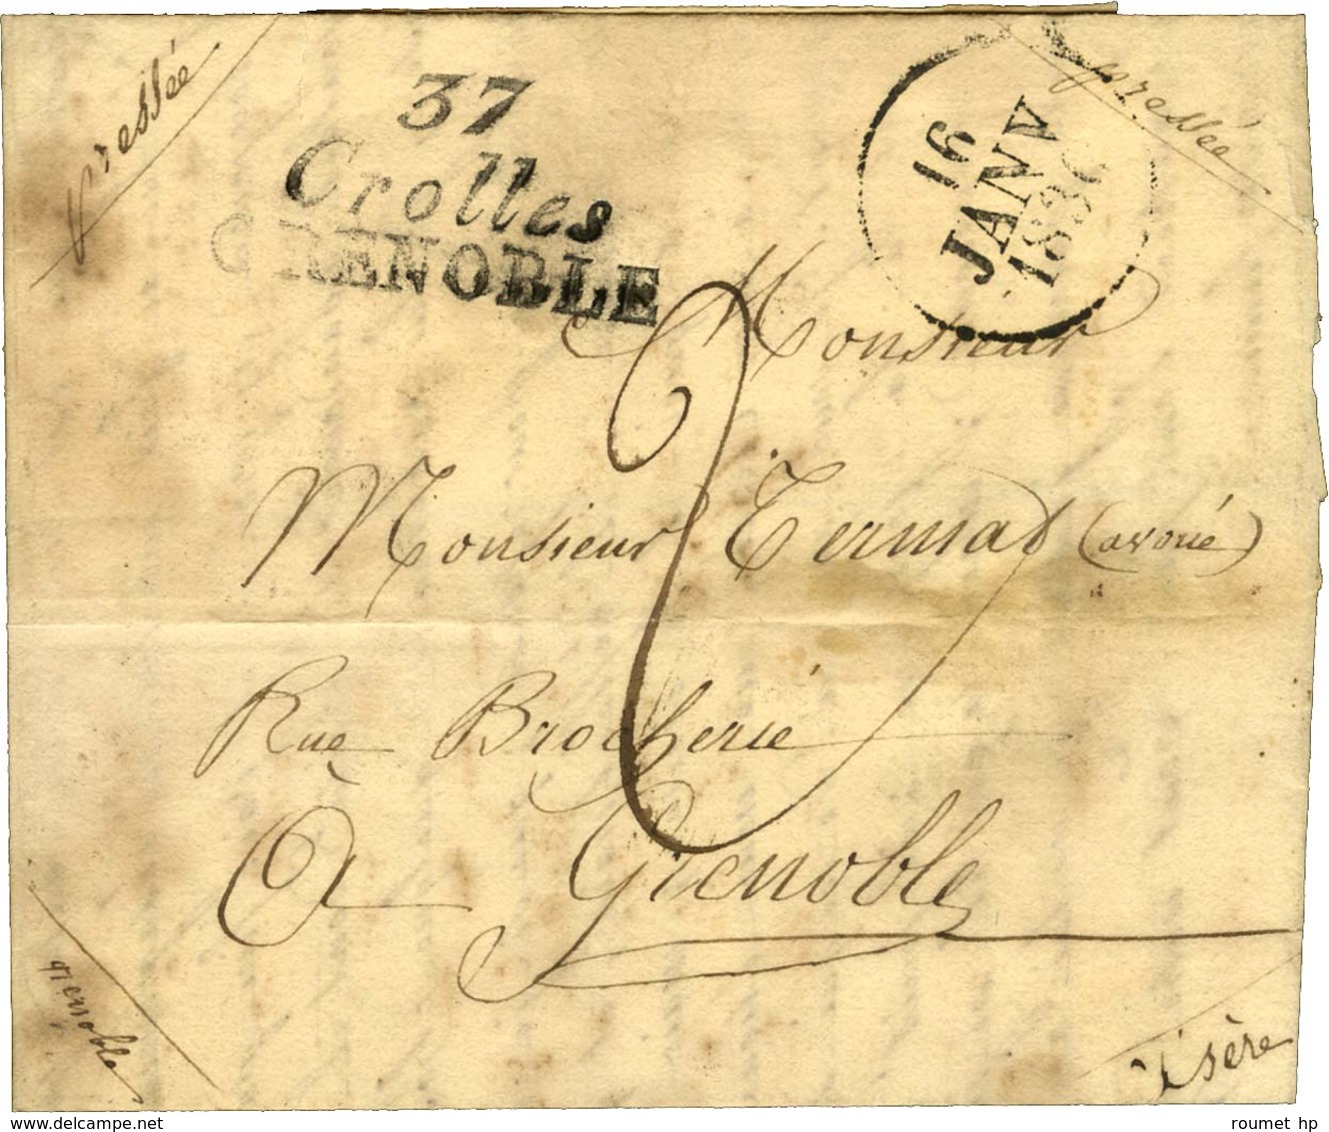 pressée
37
Crolles
GRENOBLE
16
JANV
1836
pressée
Monsieur
Monsieur Termat (avoué)
2
Rue Brocherie
à Grenoble
grenoble
isère
www.delcampe.net
roumet hp